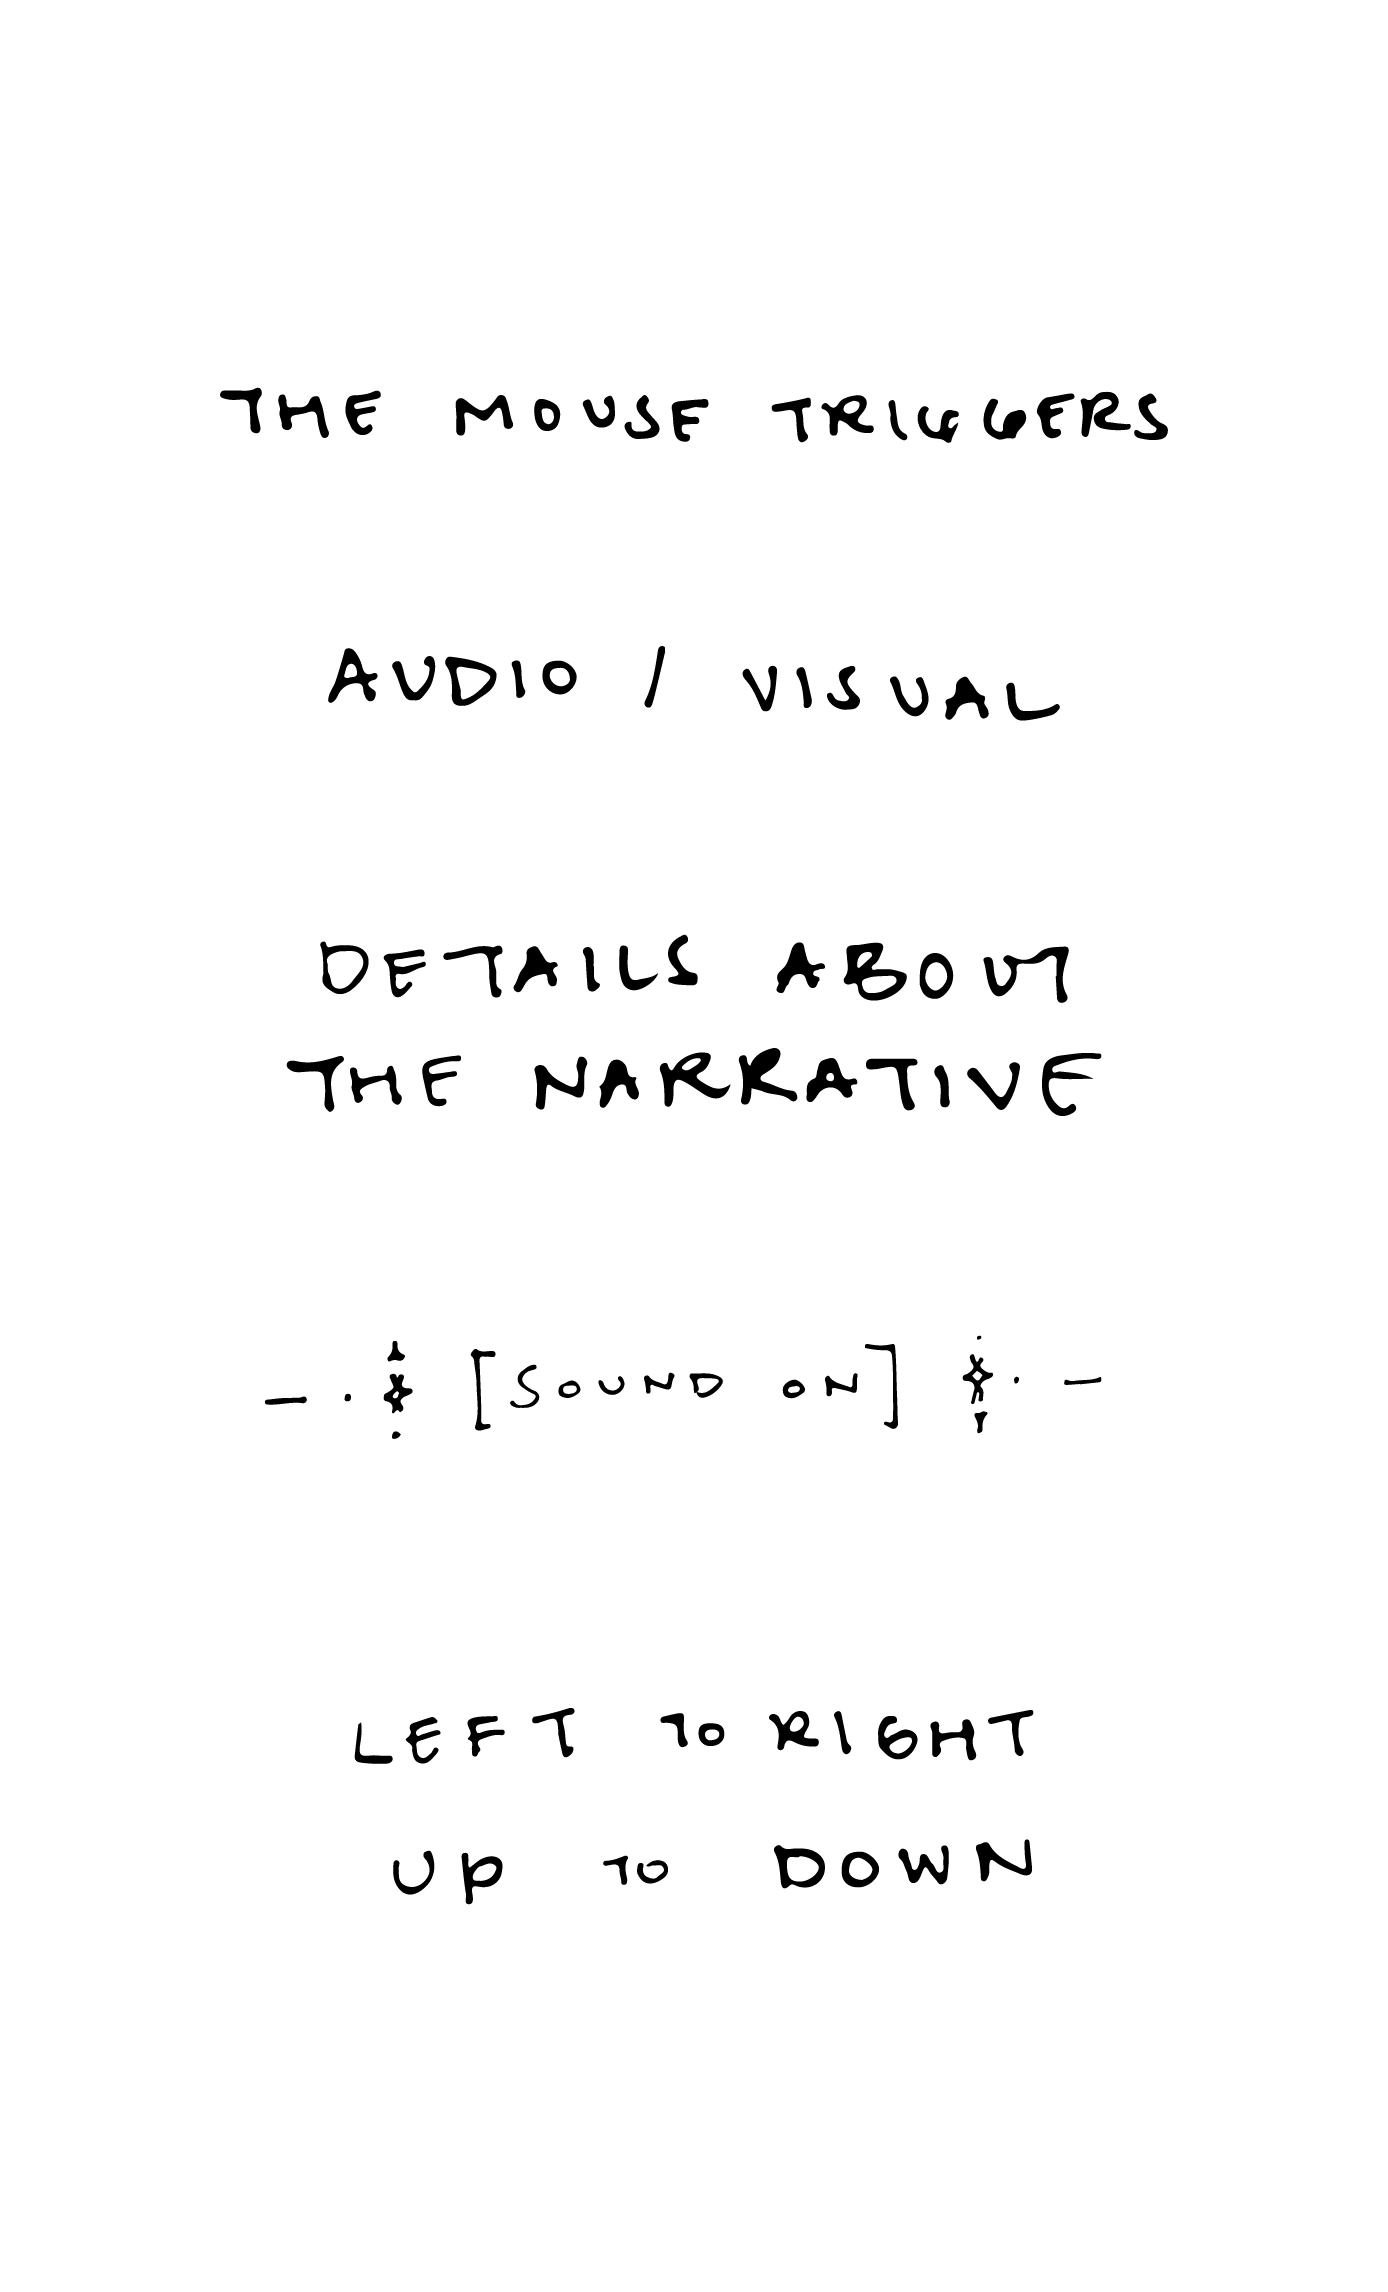 THE MOUSE TRIGGERS
AUDIO / VISUAL
DETAILS ABOUT
THE NARRATIVE
[SOUND ON]
LEFT TO RIGHT
UP TO DOWN